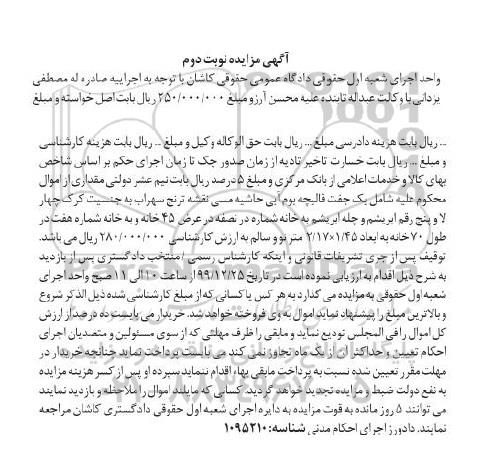 آگهی مزایده نوبت دوم
واحد اجرای شعبه اول حقوقی دادگاه عمومی حقوقی کاشان با توجه به اجراییه صادره له مصطفی
یزدانی با وکالت عبداله تابنده علیه محسن آرزو مبلغ ۲۵۰/۰۰۰/۰۰۰ ریال بابت اصل خواسته و مبلغ
... ریال بابت هزینه دادرسی مبلغ ... ریال بابت حق الوکاله وکیل و مبلغ .. ریال بابت هزینه کارشناسی
و مبلغ ... ریال بابت خسارت تاخیر تادیه از زمان صدور چک تا زمان اجرای حکم بر اساس شاخص
بهای کالا و خدمات اعلامی از بانک مرکزی و مبلغ ۵ درصد ریال بابت نیم عشر دولتی مقداری از اموال
محکوم علیه شامل یک جفت قالیچه بوم آبی حاشیه مسی نقشه ترنج سهراب به جنسیت کرک چهار
لا و پنج رقم ابریشم و چله ابریشم به خانه شماره در نصفه در عرض ۴۵ خانه و به خانه شماره هفت در
طول ۷۰ خانه به ابعاد ۱/۴۵×۲/۱۷ متر نو و سالم به ارزش کارشناسی ۲۸۰/۰۰۰/۰۰۰ ریال می باشد.
توقیف پس از جری تشریفات قانونی و اینکه کارشناس رسمی / منتخب دادگستری پس از بازدید
به شرح ذیل اقدام به ارزیابی نموده است در تاریخ ۹۹/۱۲/۲۵ از ساعت ۱۰ الی ۱۱ صبح واحد اجرای
شعبه اول حقوقی به مزایده می گذارد به هر کس یا کسانی که از مبلغ کارشناسی شده ذیل الذکر شروع
و بالاترین مبلغ را پیشنهاد نماید اموال به وی فروخته خواهد شد. خریدار می بایست ده درصد از ارزش
کل اموال را فی المجلس تودیع نماید و مابقی را ظرف مهلتی که از سوی مسئولین و متصدیان اجرای
احکام تعیین و حداکثر آن از یک ماه تجاوز نمی کند می بایست پرداخت نماید چنانچه خریدار در
مهلت مقرر تعیین شده نسبت به پرداخت مابقی بهاء اقدام ننماید سپرده او پس از کسر هزینه مزایده
به نفع دولت ضبط و مزایده تجدید خواهد گردید. کسانی که مایلند اموال را ملاحظه و بازدید نمایند
می توانند ۵ روز مانده به فوت مزایده به دایره اجرای شعبه اول حقوقی دادگستری کاشان مراجعه
نمایند. دادورز اجرای احکام مدنی شناسه: ۱۰۹۵۲۱۰